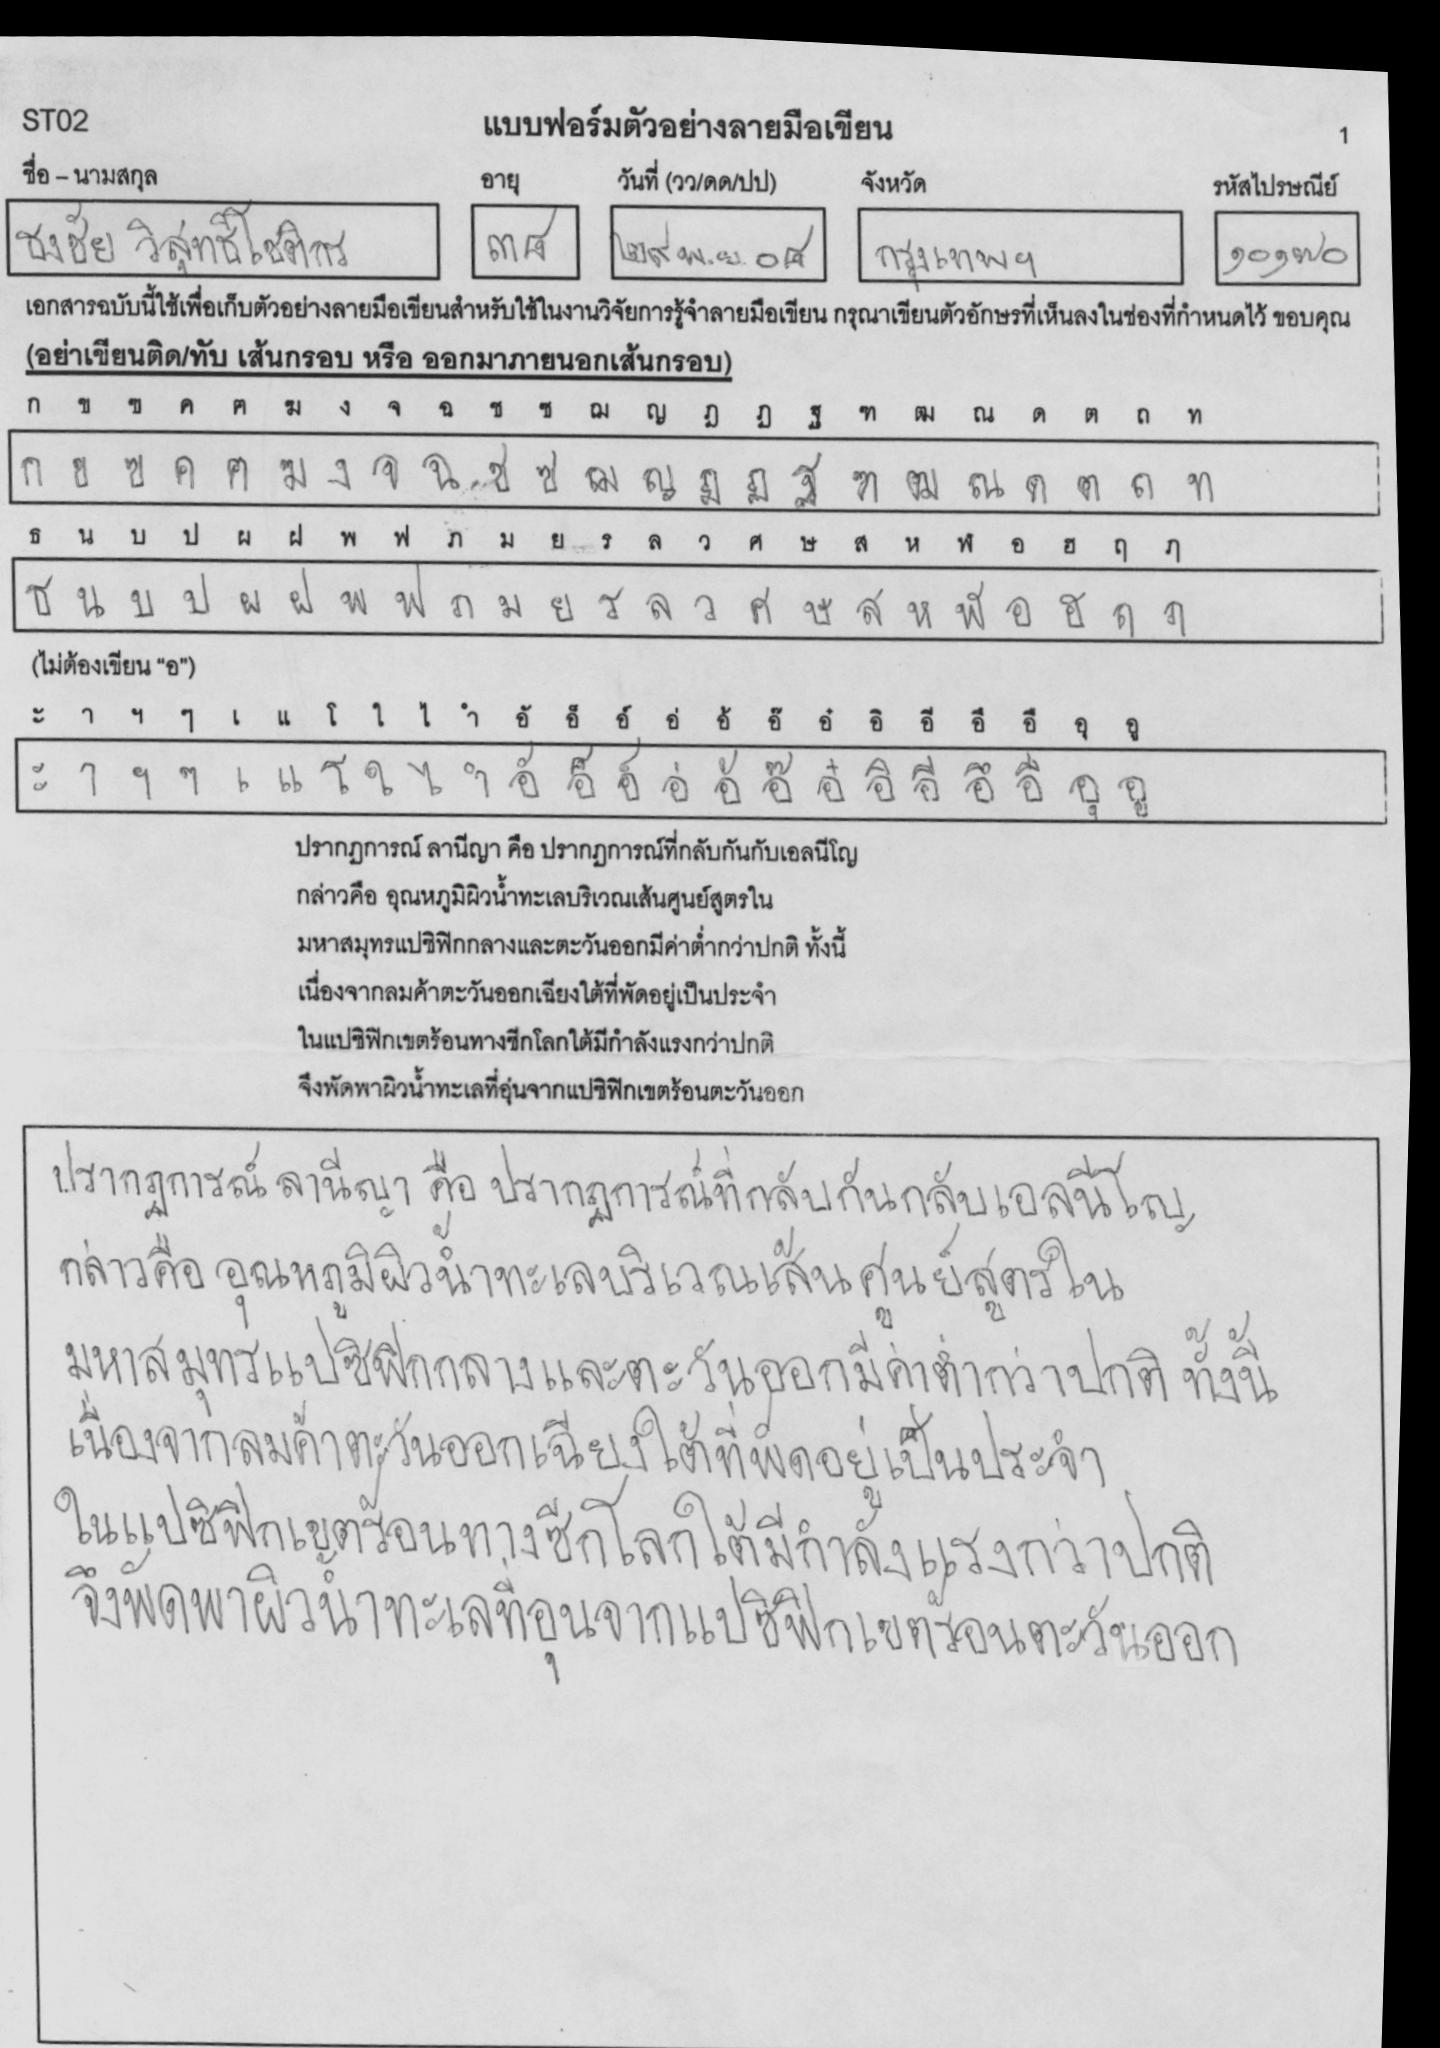 ST02
แบบฟอร์มตัวอย่างลายมือเขียน
1
ชื่อ – นามสกุล อายุ วันที่ (วว/ดด/ปป) จังหวัด รหัสไปรษณีย์
ธงชัย วิสุทธิ์โชติกร ๓๘ ๒๙ พ.ย. ๐๘ กรุงเทพฯ ๑๐๑๗๐
เอกสารฉบับนี้ใช้เพื่อเก็บตัวอย่างลายมือเขียนสำหรับใช้ในงานวิจัยการรู้จำลายมือเขียน กรุณาเขียนตัวอักษรที่เห็นลงในช่องที่กำหนดไว้ ขอบคุณ
(อย่าเขียนติด/ทับ เส้นกรอบ หรือ ออกมาภายนอกเส้นกรอบ)
ก ข ฃ ค ฅ ฆ ง จ ฉ ช ซ ฌ ญ ฎ ฏ ฐ ฑ ฒ ณ ด ต ถ ท
ก ข ฃ ค ฅ ฆ ง จ ฉ ช ซ ฌ ญ ฎ ฏ ฐ ฑ ฒ ณ ด ต ถ ท
ธ น บ ป ผ ฝ พ ฟ ภ ม ย ร ล ว ศ ษ ส ห ฬ อ ฮ ฤ ฦ
ธ น บ ป ผ ฝ พ ฟ ภ ม ย ร ล ว ศ ษ ส ห ฬ อ ฮ ฤ ฦ
(ไม่ต้องเขียน “อ”)
ะ า ฯ ๆ เ แ โ ใ ไ ำ อั อ็ อ์ อ่ อ้ อ๊ อ๋ อิ อี อึ อื อุ อู
ะ า ฯ ๆ เ แ โ ใ ไ ำ อั อ็ อ์ อ่ อ้ อ๊ อ๋ อิ อี อึ อื อุ อู
ปรากฏการณ์ ลานีญา คือ ปรากฏการณ์ที่กลับกันกับเอลนีโญ
กล่าวคือ อุณหภูมิผิวน้ำทะเลบริเวณเส้นศูนย์สูตรใน
มหาสมุทรแปซิฟิกกลางและตะวันออกมีค่าต่ำกว่าปกติ ทั้งนี้
เนื่องจากลมค้าตะวันออกเฉียงใต้ที่พัดอยู่เป็นประจำ
ในแปซิฟิกเขตร้อนทางซีกโลกใต้มีกำลังแรงกว่าปกติ
จึงพัดพาผิวน้ำทะเลที่อุ่นจากแปซิฟิกเขตร้อนตะวันออก
ปรากฏการณ์ ลานีญา คือ ปรากฏการณ์ที่กลับกันกลับเอลนีโญ
กล่าวคือ อุณหภูมิผิวน้ำทะเลบริเวณเส้นศูนย์สูตรใน
มหาสมุทรแปซิฟิกกลางและตะวันออกมีค่าต่ำกว่าปกติ ทั้งนี้
เนื่องจากลมค้าตะวันออกเฉียงใต้ที่พัดอยู่เป็นประจำ
ในแปซิฟิกเขตร้อนทางซีกโลกใต้มีกำลังแรงกว่าปกติ
จึงพัดพาผิวน้ำทะเลที่อุ่นจากแปซิฟิกเขตร้อนตะวันออก